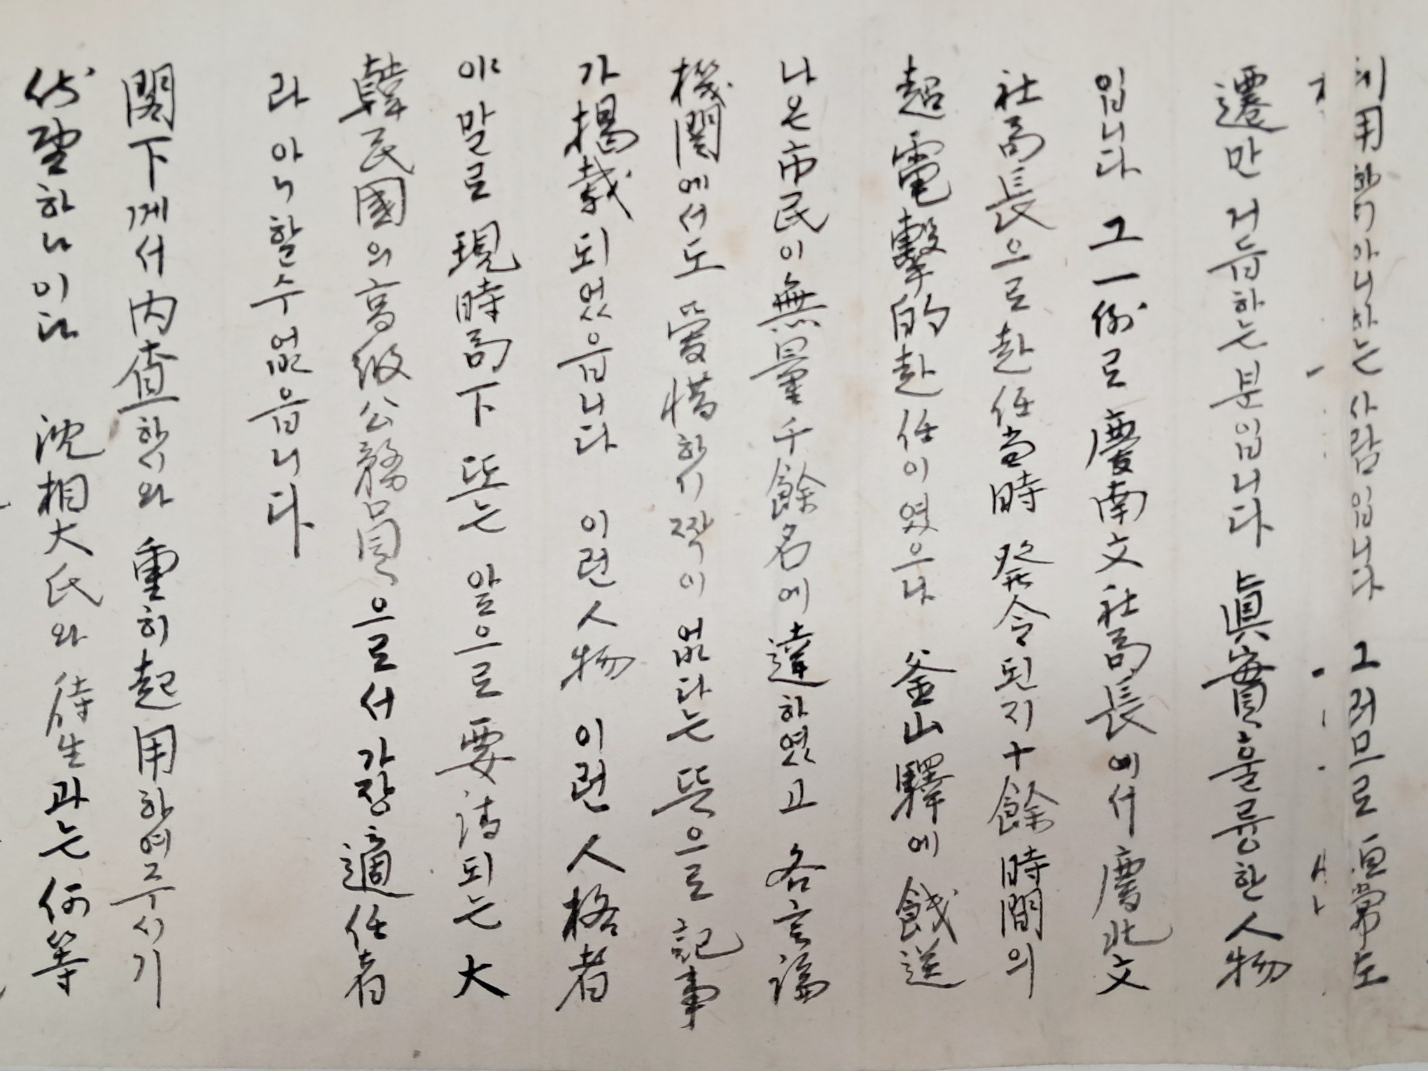 利用하지아니하는 사람입니다 그러므로 恒常左
遷만 거듭하는 분입니다 眞實훌륭한 人物
입니다 그一例로 慶南文社局長에서 慶北文
社局長으로 赴任当時 発令된지 十餘時間의
超電擊的赴任이였으나 釜山驛에 餞送
나온市民이 無量千餘名에 達하였고 各言論
機関에서도 愛惜하기 짝이 없다는 뜻으로 記事
가 揭載되었읍니다 이런人物 이런人格者
야말로 現時局下 또는 앞으로 要請되는 大
韓民國의 高級公務員으로서 가장 適任者
라 아니할수 없읍니다
閣下께서 內査하시와 重히 起用하여주시기
伏望하나이다 沈相大氏와 侍生과는 何等